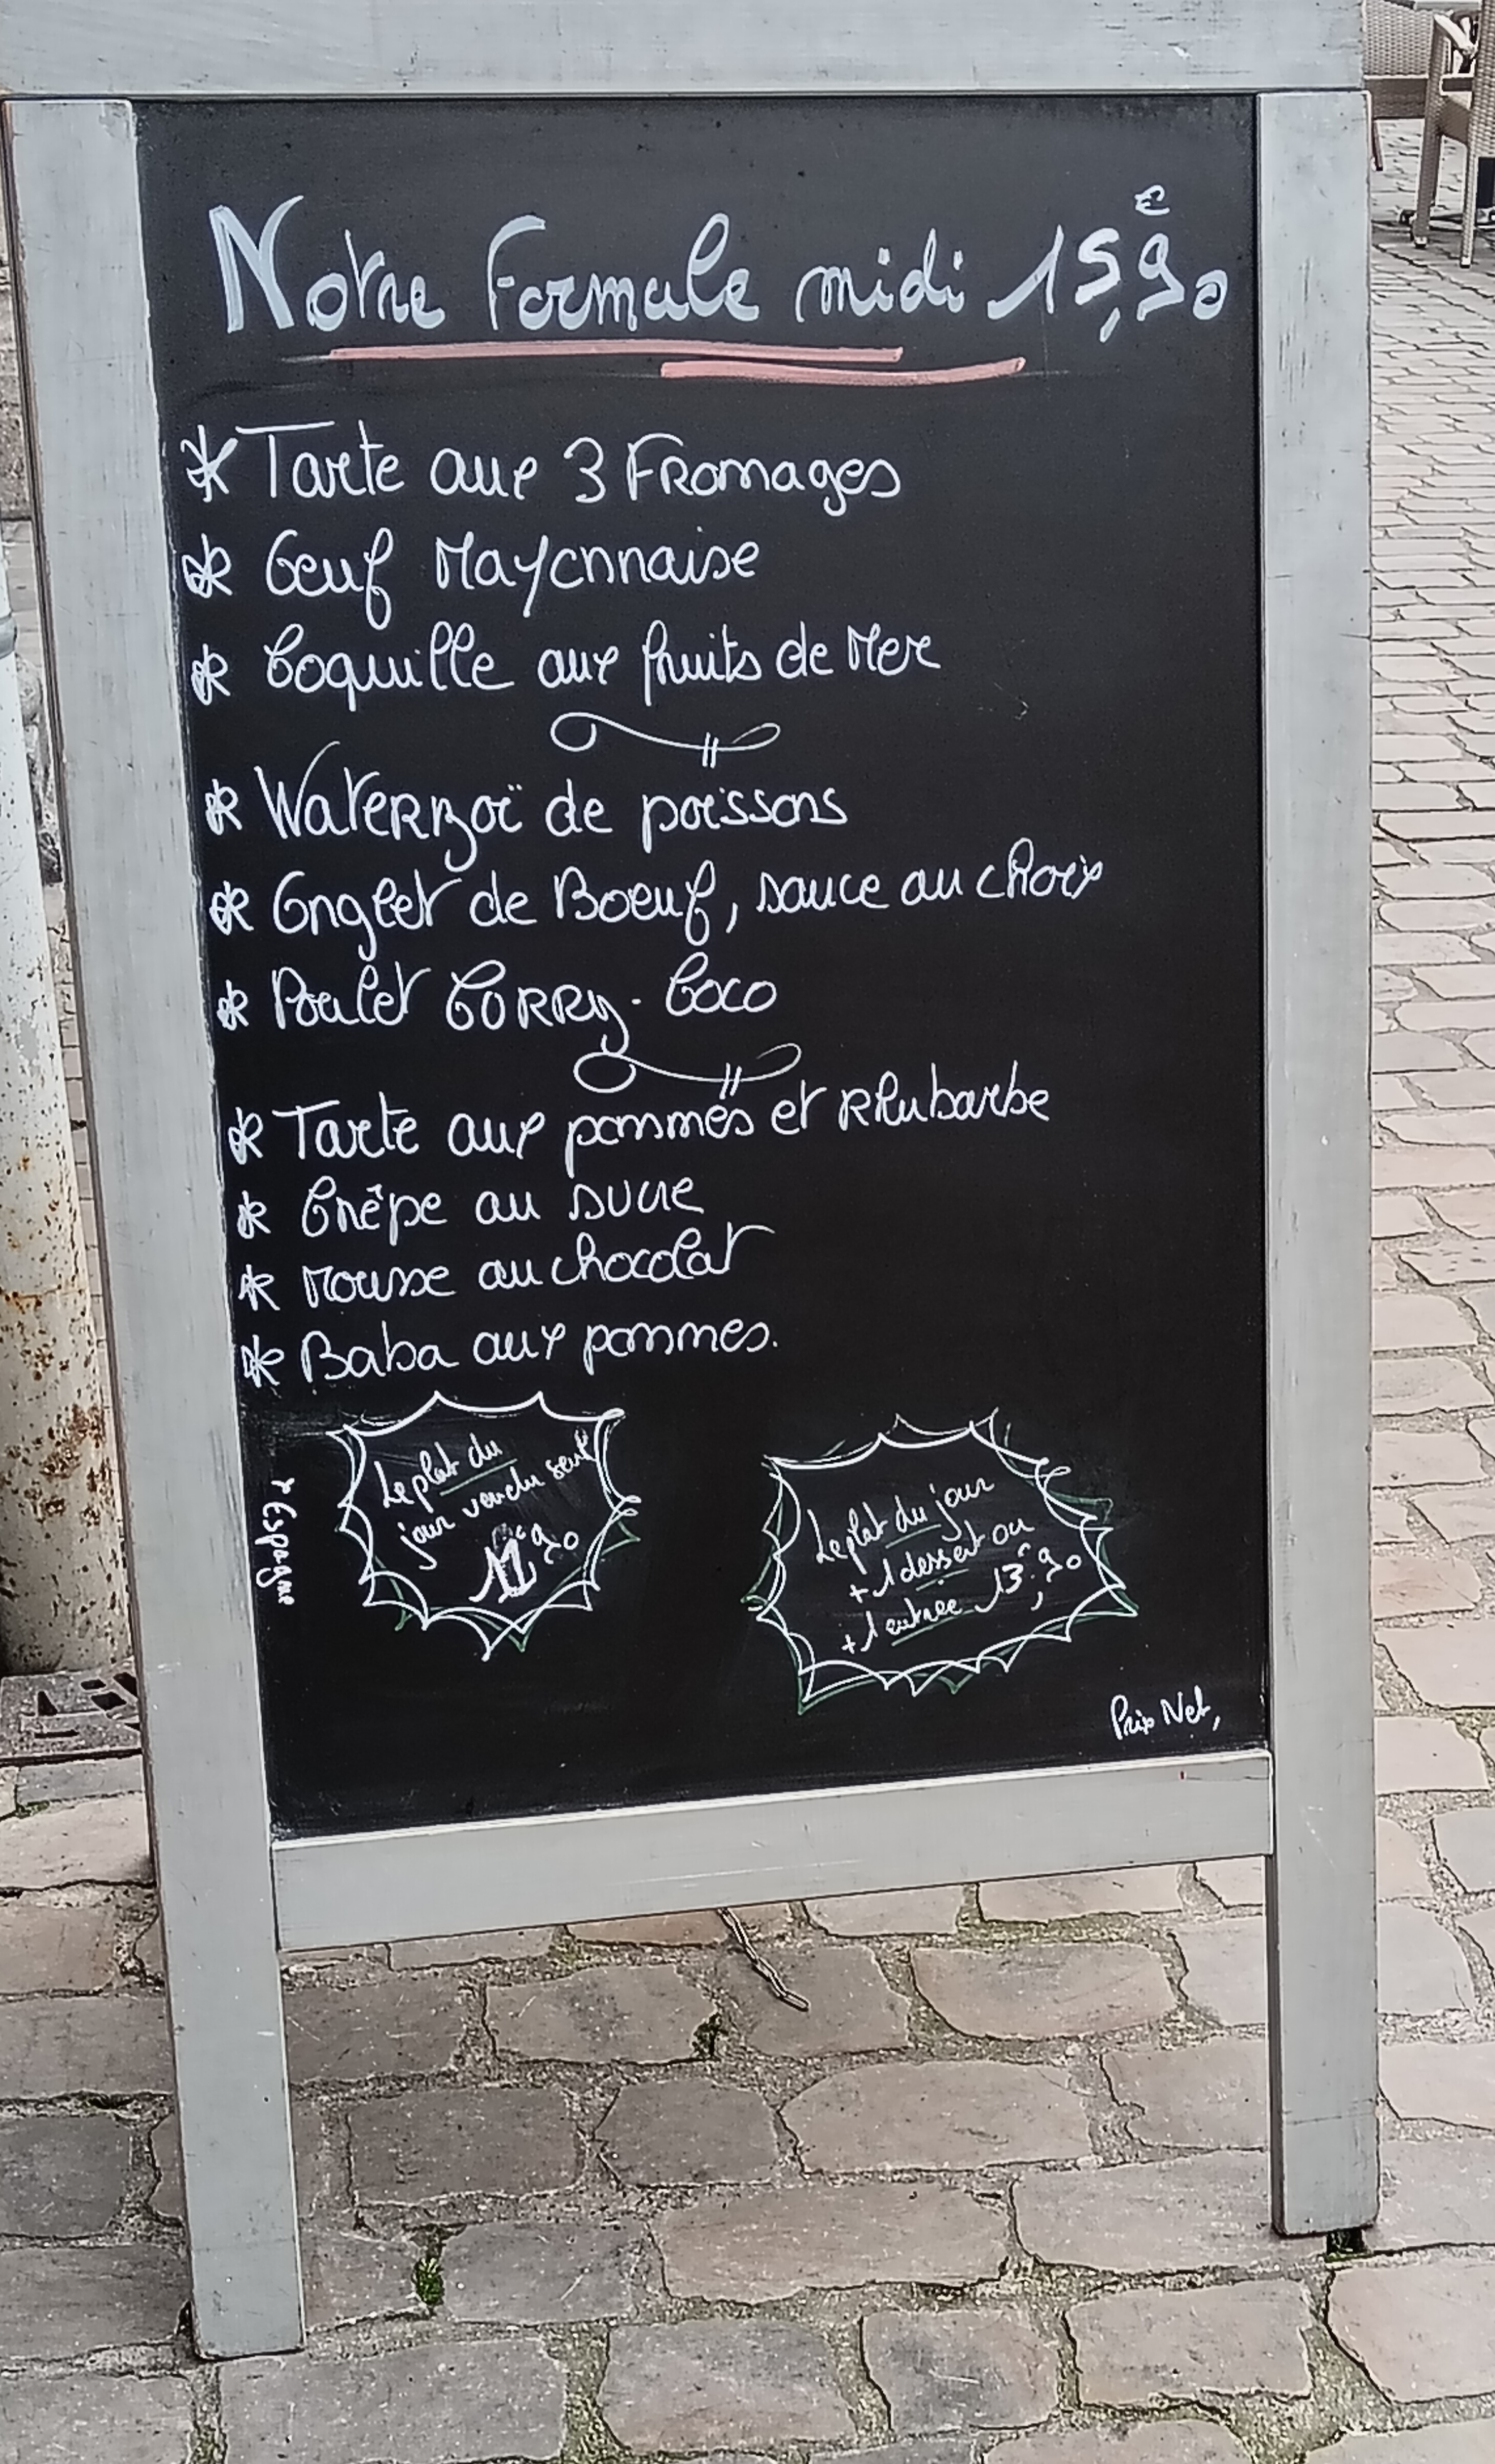 Notre Formule midi 15,90 €
* Tarte aux 3 Fromages
* Oeuf Mayonnaise
* Coquille aux fruits de Mer
* Waterzoï de poissons
* Onglet de Boeuf, sauce au choix
* Poulet Corry-Coco
* Tarte aux pommes et Rhubarbe
* Crêpe au sucre
* Mousse au chocolat
* Baba aux pommes.
* Espagne
Le plat du
jour vendu seul
11€90
Le plat du jour
+ 1 dessert ou
+ 1 entrée 13€,90
Prix Net,